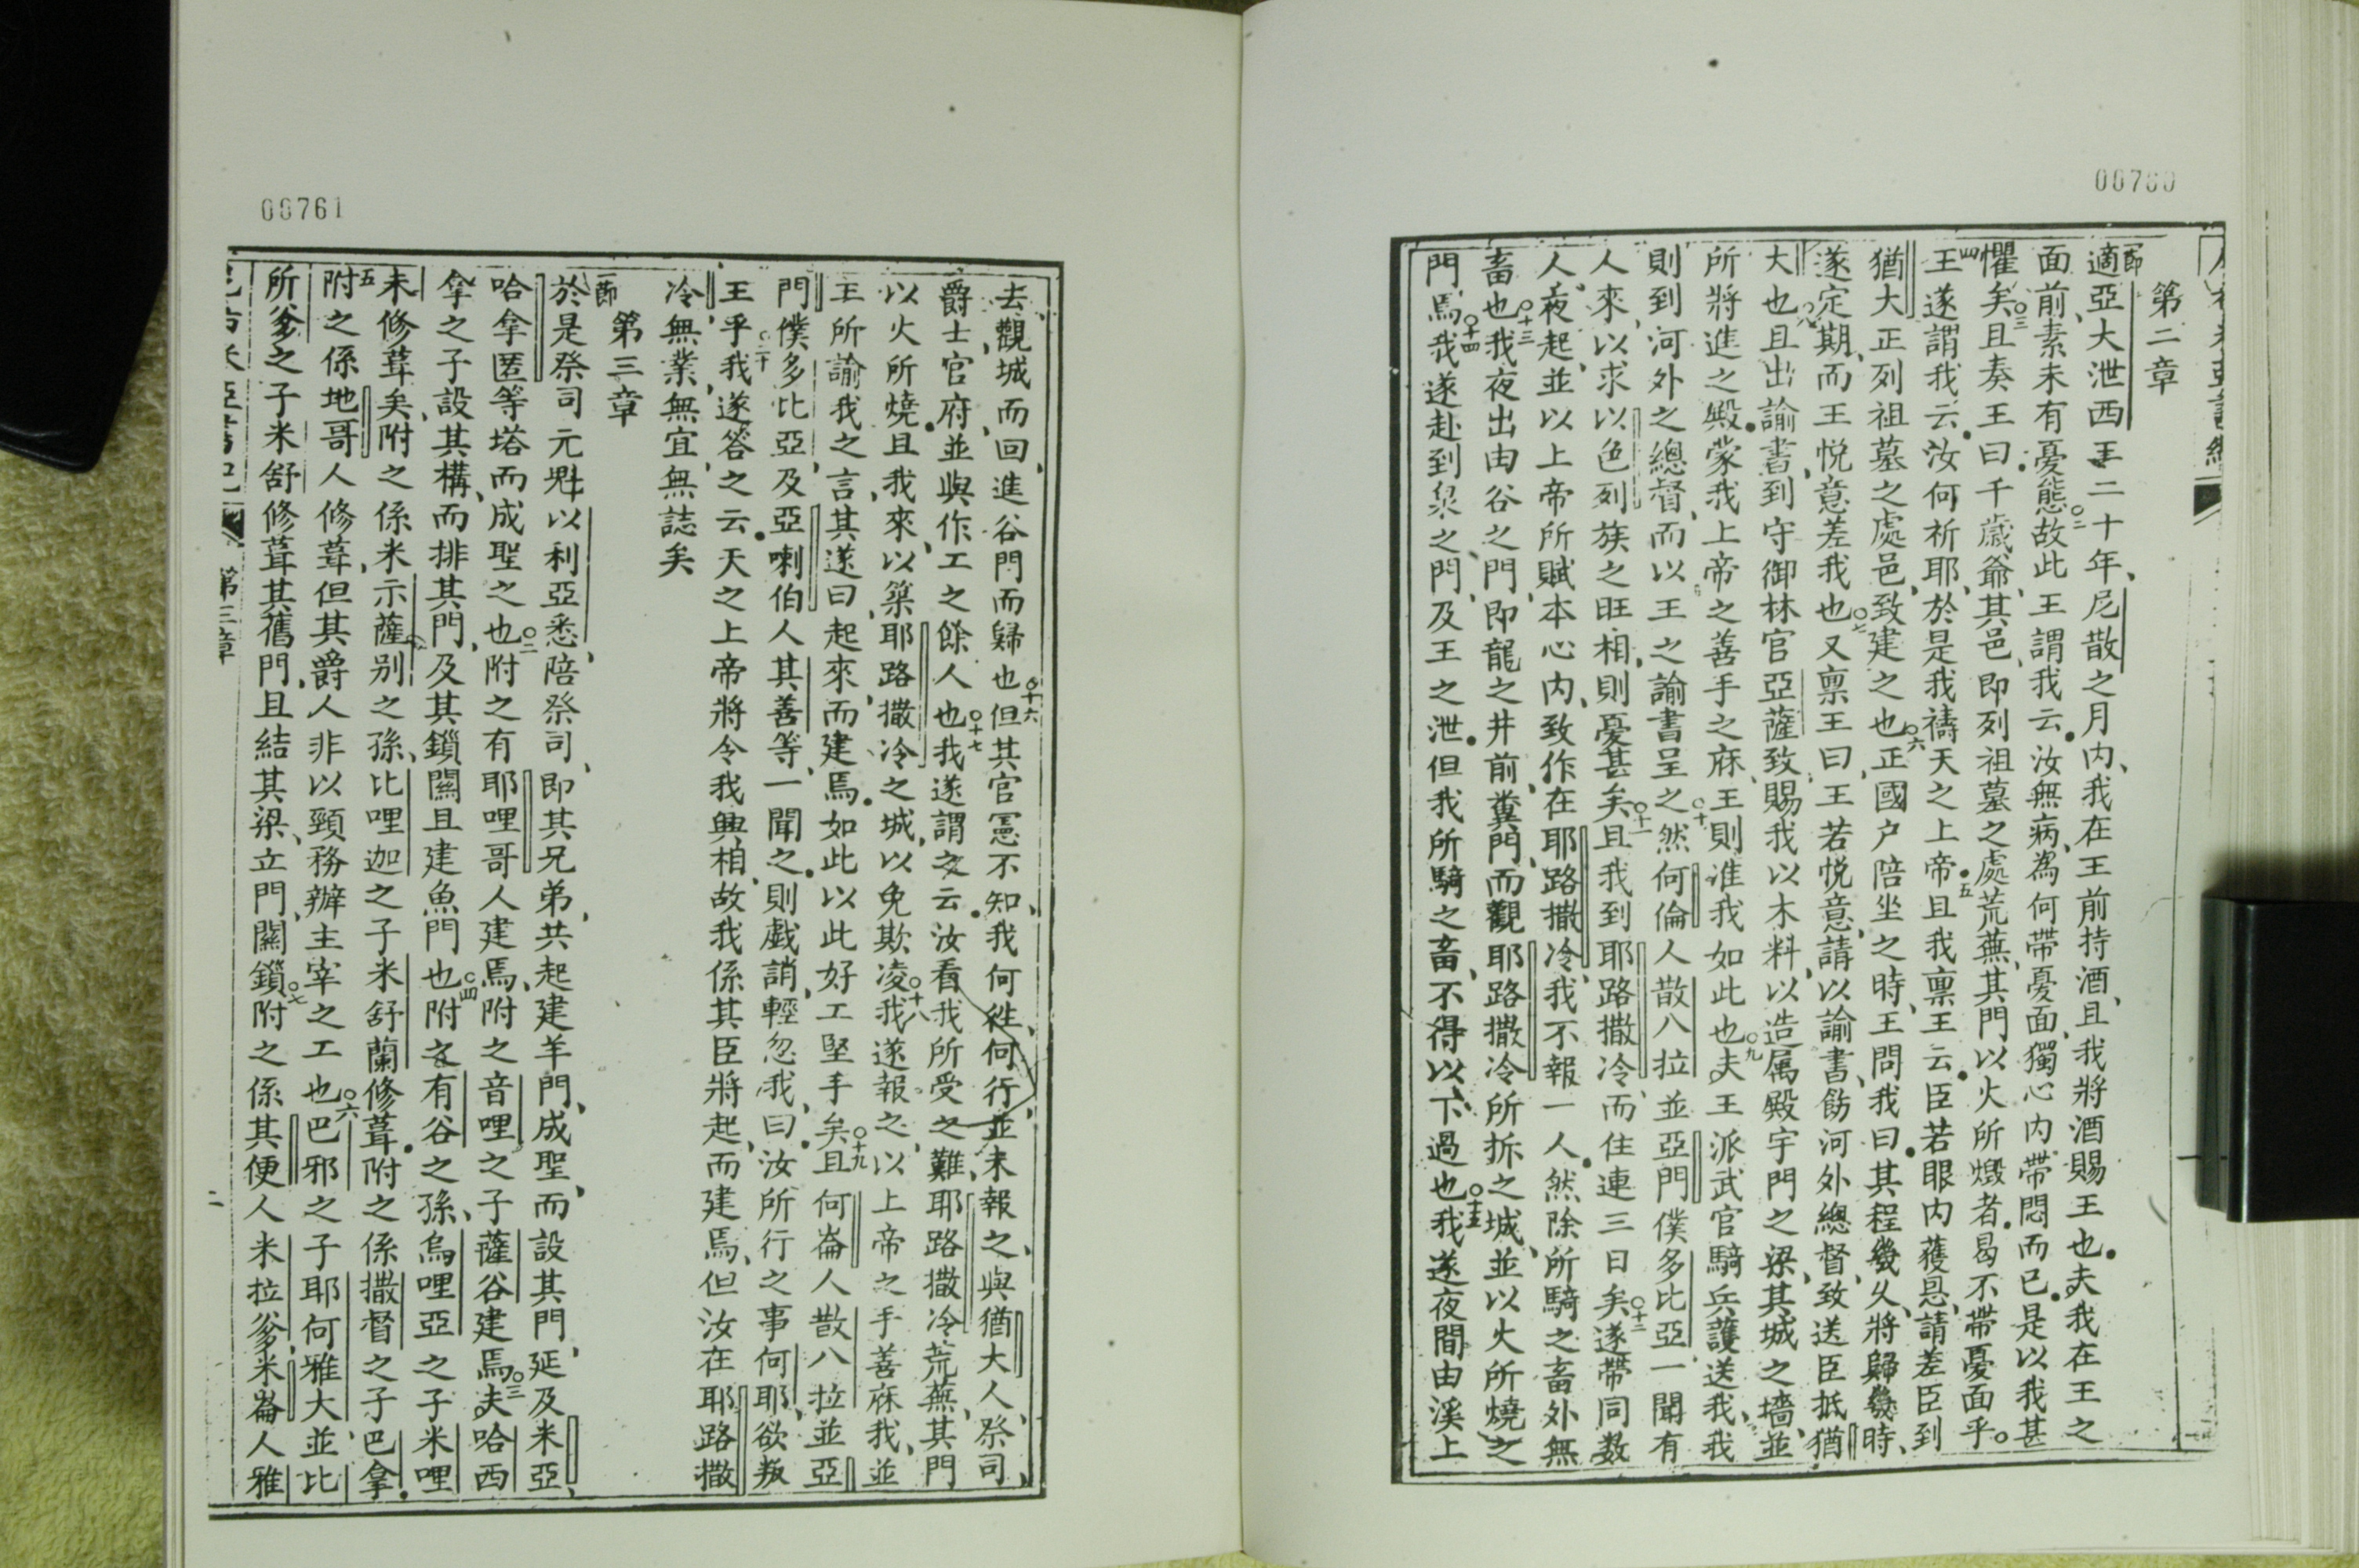 第二章
適亞大泄西王二十年、尼散之月內、我在王前持酒、且我將酒賜王也。夫我在王之
面前、素未有憂態○二故此王謂我云。汝無病、為何帶憂面、獨心內帶悶而已。是以我甚
懼矣○三且奏王曰。千歲爺、其邑、即列祖墓之處荒蕪、其門以火所燬者。曷不帶憂面乎。
四王遂謂我云。汝何祈耶、於是我禱天之上帝。五且我禀王云。臣若眼內獲恩、請差臣到
猶大正列祖墓之處邑、致建之也○六正國户陪坐之時、王問我曰。其程幾久、將歸幾時、
遂定期、而王悅意差我也○七又禀王曰、王若悅意、請以諭書、飭河外總督、致送臣抵猶
大也○八且出諭書、到守御林官亞薩致賜我以木料、以造属殿宇門之梁、其城之墻、並
所將進之殿。蒙我上帝之善手之庥、王則准我如此也○九夫王派武官騎兵護送我、我
則到河外之總督、而以王之諭書呈之○十然何倫人散八拉並亞門僕多比亞一聞有
人來、以求以色列族之旺相、則憂甚矣○十一且我到耶路撒冷、而住連三日矣○十二遂帶同数
人、夜起、並以上帝所賦本心內、致作在耶路撒冷、我不報一人。然除所騎之畜外無
畜也○十三我夜出由谷之門、即龍之井前、糞門、而觀耶路撒冷所拆之城、並以火所燒之
門焉○十四我遂赴到泉之門、及王之泄。但我所騎之畜、不得以下過也○十五我遂夜間由溪上
00761
去、觀城而回、進谷門而歸也○十六但其官憲不知、我何徃、何行、並未報之、與猶大人、祭司、
爵士官府。並與作工之餘人也○十七我遂謂之云。汝看我所受之難、耶路撒冷荒蕪、其門
以火所燒。且我來、以築耶路撒冷之城、以免欺凌○十八我遂報之、以上帝之手善庥我、並
王所諭我之言、其遂曰起來、而建焉。如此以此好工堅手矣○十九且何崙人散八拉並亞
門僕多比亞、及亞喇伯人其善等、一聞之。則戲誚輕忽我、曰。汝所行之事何耶、欲叛
王乎○二十我遂答之云。天之上帝將令我興相、故我係其臣將起、而建焉、但汝在耶路撒
冷、無業、無宜、無誌矣
第三章
一節於是祭司元魁以利亞悉、陪祭司、即其兄弟、共起建羊門、成聖、而設其門、延及米亞、
哈拿匿等塔而成聖之也○二附之有耶哩哥人建焉、附之音哩之子薩谷建焉○三夫哈西
拿之子設其構、而排其門、及其鎖關且建魚門也○四附之有谷之孫、烏哩亞之子米哩
未修葺矣、附之係米示薩別之孫、比哩迦之子米舒蘭修葺。附之係撒督之子巴拿。
五附之係地哥人修葺、但其爵人非以頸務辦主宰之工也○六巴邪之子耶何雅大並比
所爹之子米舒修葺其舊門、且結其梁、立門、關鎖○七附之係其便人米拉爹、米崙人雅
第三章
二